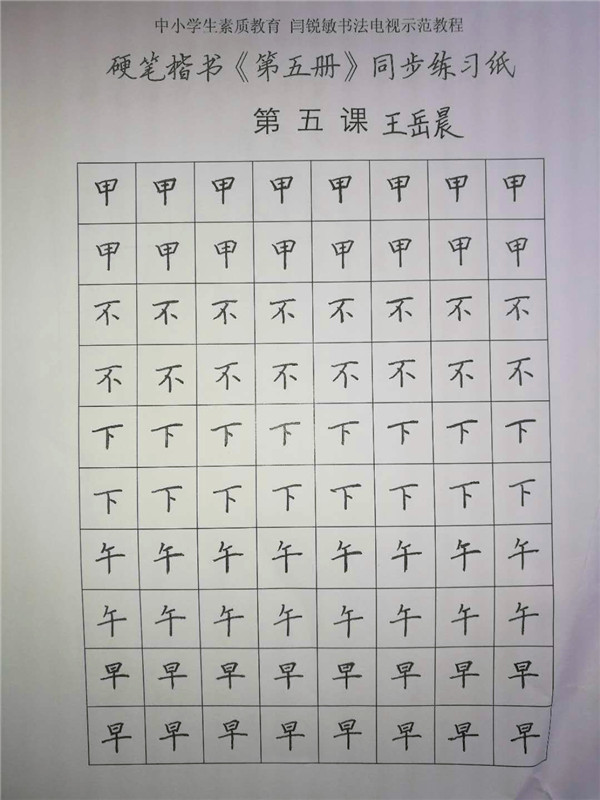 中小学生素质教育 闫锐敏书法电视示范教程
硬笔楷书《第五册》同步练习纸
第五课 王岳晨
甲 甲 甲 甲 甲 甲 甲 甲
甲 甲 甲 甲 甲 甲 甲 甲
不 不 不 不 不 不 不 不
不 不 不 不 不 不 不 不
下 下 下 下 下 下 下 下
下 下 下 下 下 下 下 下
午 午 午 午 午 午 午 午
午 午 午 午 午 午 午 午
早 早 早 早 早 早 早 早
早 早 早 早 早 早 早 早